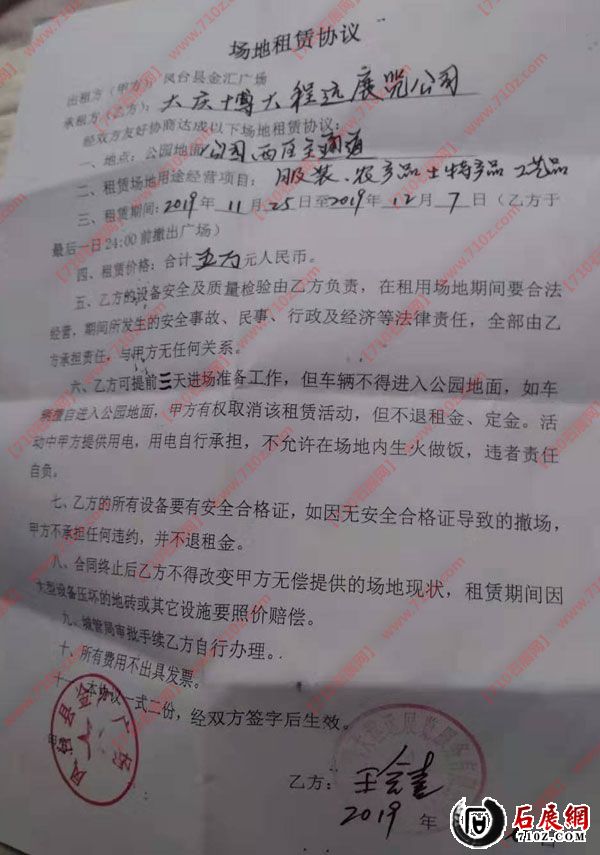 场地租赁协议
出租方（甲方）：凤台县金汇广场
承租方（乙方）：大庆博大程远展览公司
经双方友好协商达成以下场地租赁协议：
一、地点：公园地面公园、西侧主通道
二、租赁场地用途经营项目：服装、农产品土特产品工艺品
三、租赁期间：2019年11月25日至2019年12月7日（乙方于
最后一日24:00前撤出广场）
四、租赁价格：合计五万元人民币。
五、乙方的设备安全及质量检验由乙方负责，在租用场地期间要合法
经营，期间所发生的安全事故、民事、行政及经济等法律责任，全部由乙
方承担责任，与甲方无任何关系。
六、乙方可提前三天进场准备工作，但车辆不得进入公园地面，如车
辆擅自进入公园地面，甲方有权取消该租赁活动，但不退租金、定金。活
动中甲方提供用电，用电自行承担，不允许在场地内生火做饭，违者责任
自负。
七、乙方的所有设备要有安全合格证，如因无安全合格证导致的撤场，
甲方不承担任何违约，并不退租金。
八、合同终止后乙方不得改变甲方无偿提供的场地现状，租赁期间因
大型设备压坏的地砖或其它设施要照价赔偿。
九、城管局审批手续乙方自行办理。
十、所有费用不出具发票。
十一、本协议一式二份，经双方签字后生效。
凤台县金汇广场
乙方：
2019年
石展網
710z.com
【710石展网】www.710z.com